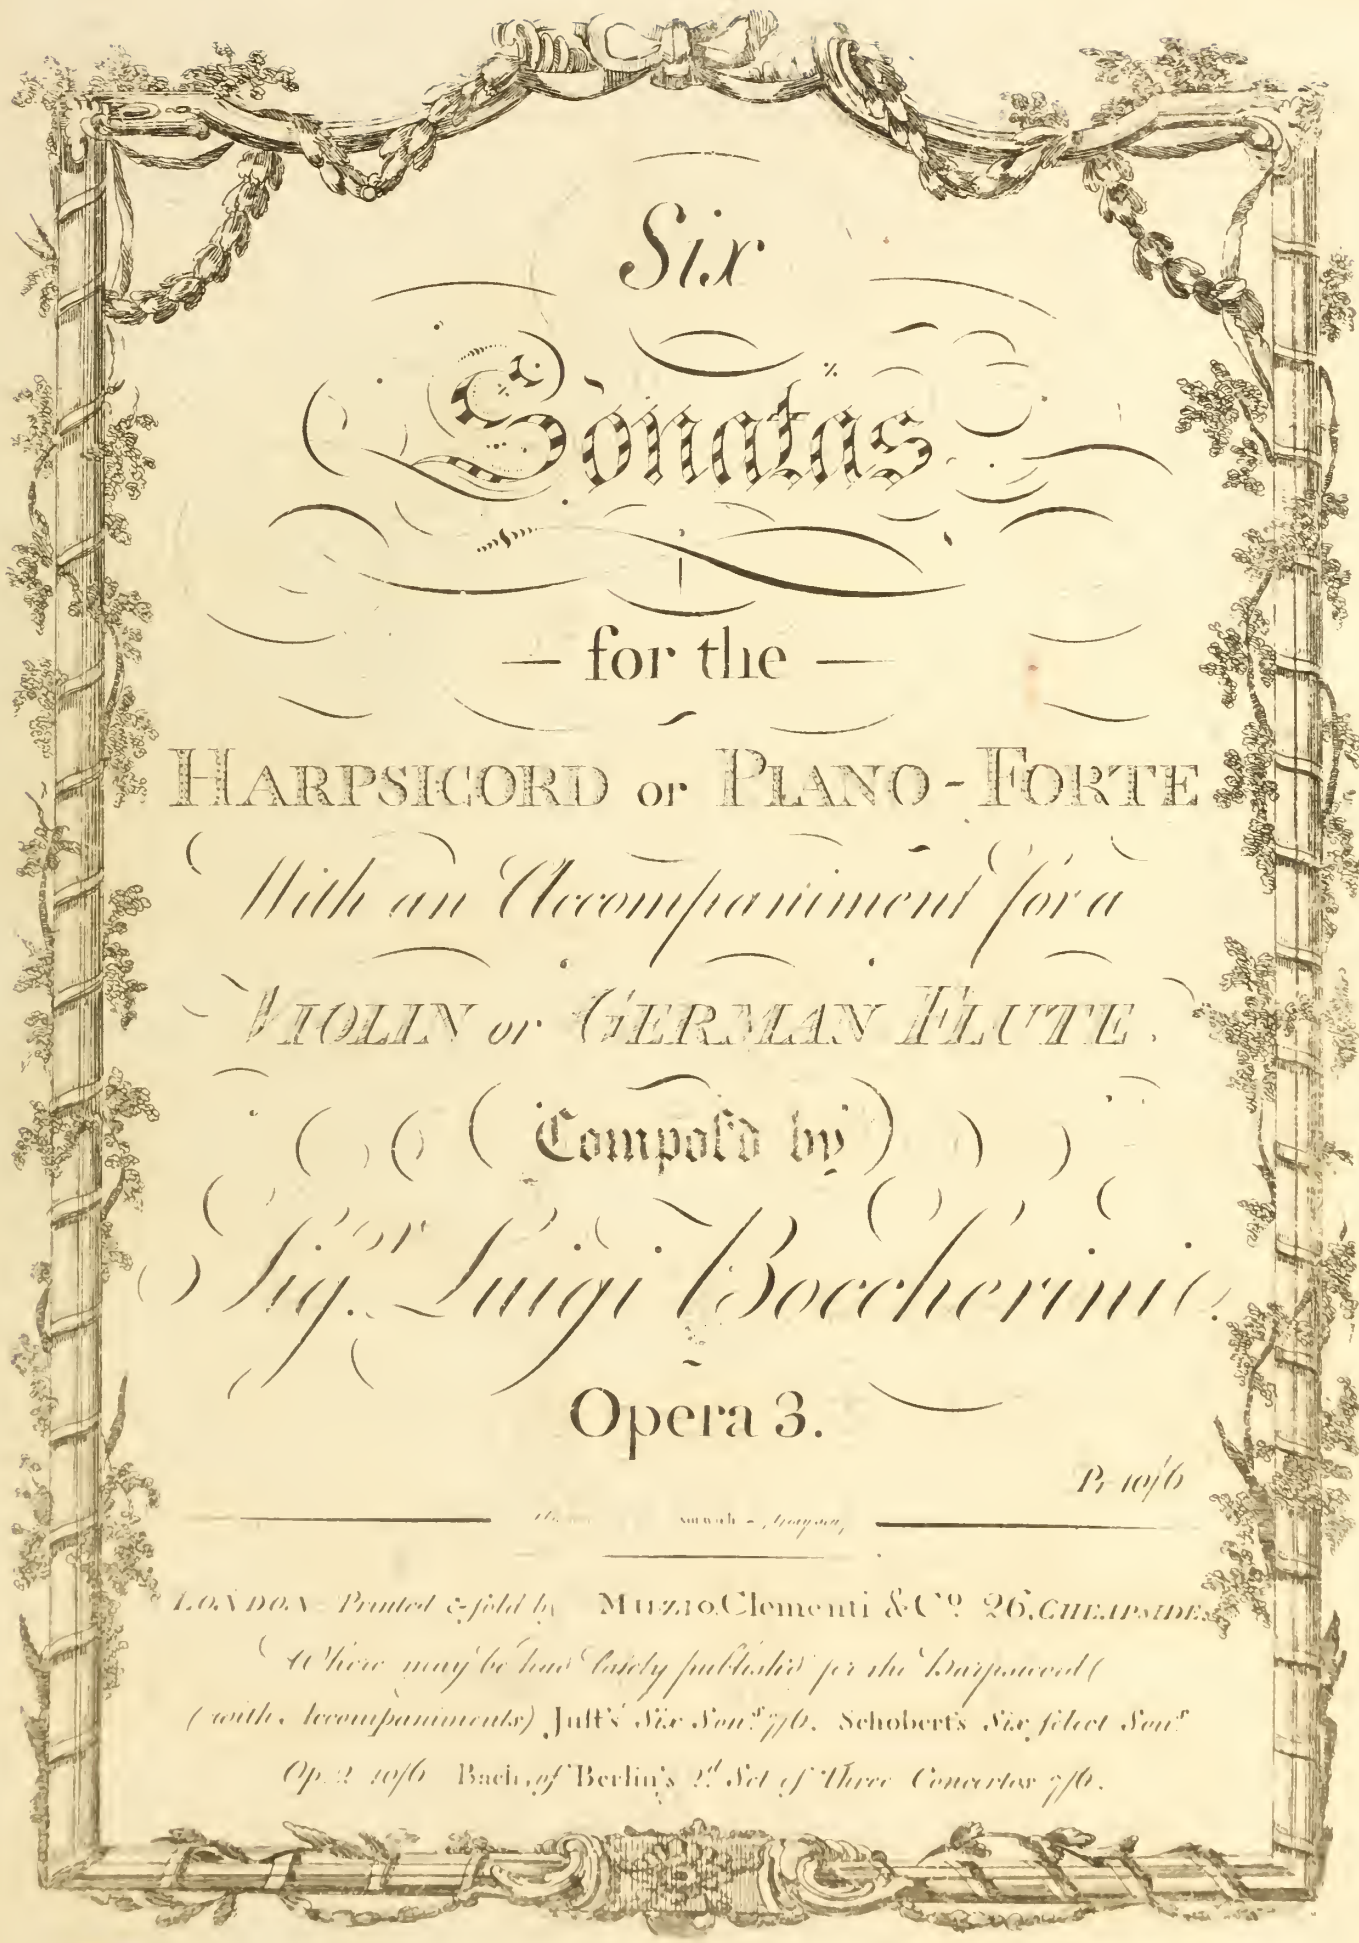 Six
Sonatas
— for the —
HARPSICORD or PIANO-FORTE
With an Accompaniment for a
VIOLIN or GERMAN FLUTE.
Compoſ'd by
Sigr. Luigi Boccherini.
Opera 3.
Pr 10/6
LONDON Printed & ſold by MUZIO Clementi & Co. 26, CHEAPSIDE,
Where may be had lately publish'd for the Harpsicord
(with Accompaniments) Juſt's Six Sons 7/6. Schobert's Six ſelect Sons
Op. 2 10/6 Bach of Berlin's 2d Set of Three Concertos 7/6.